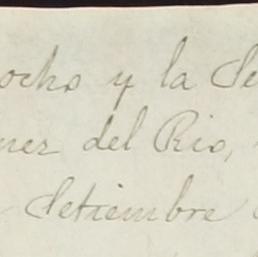 ocho y la Se
nez del Rio,
Setiembre